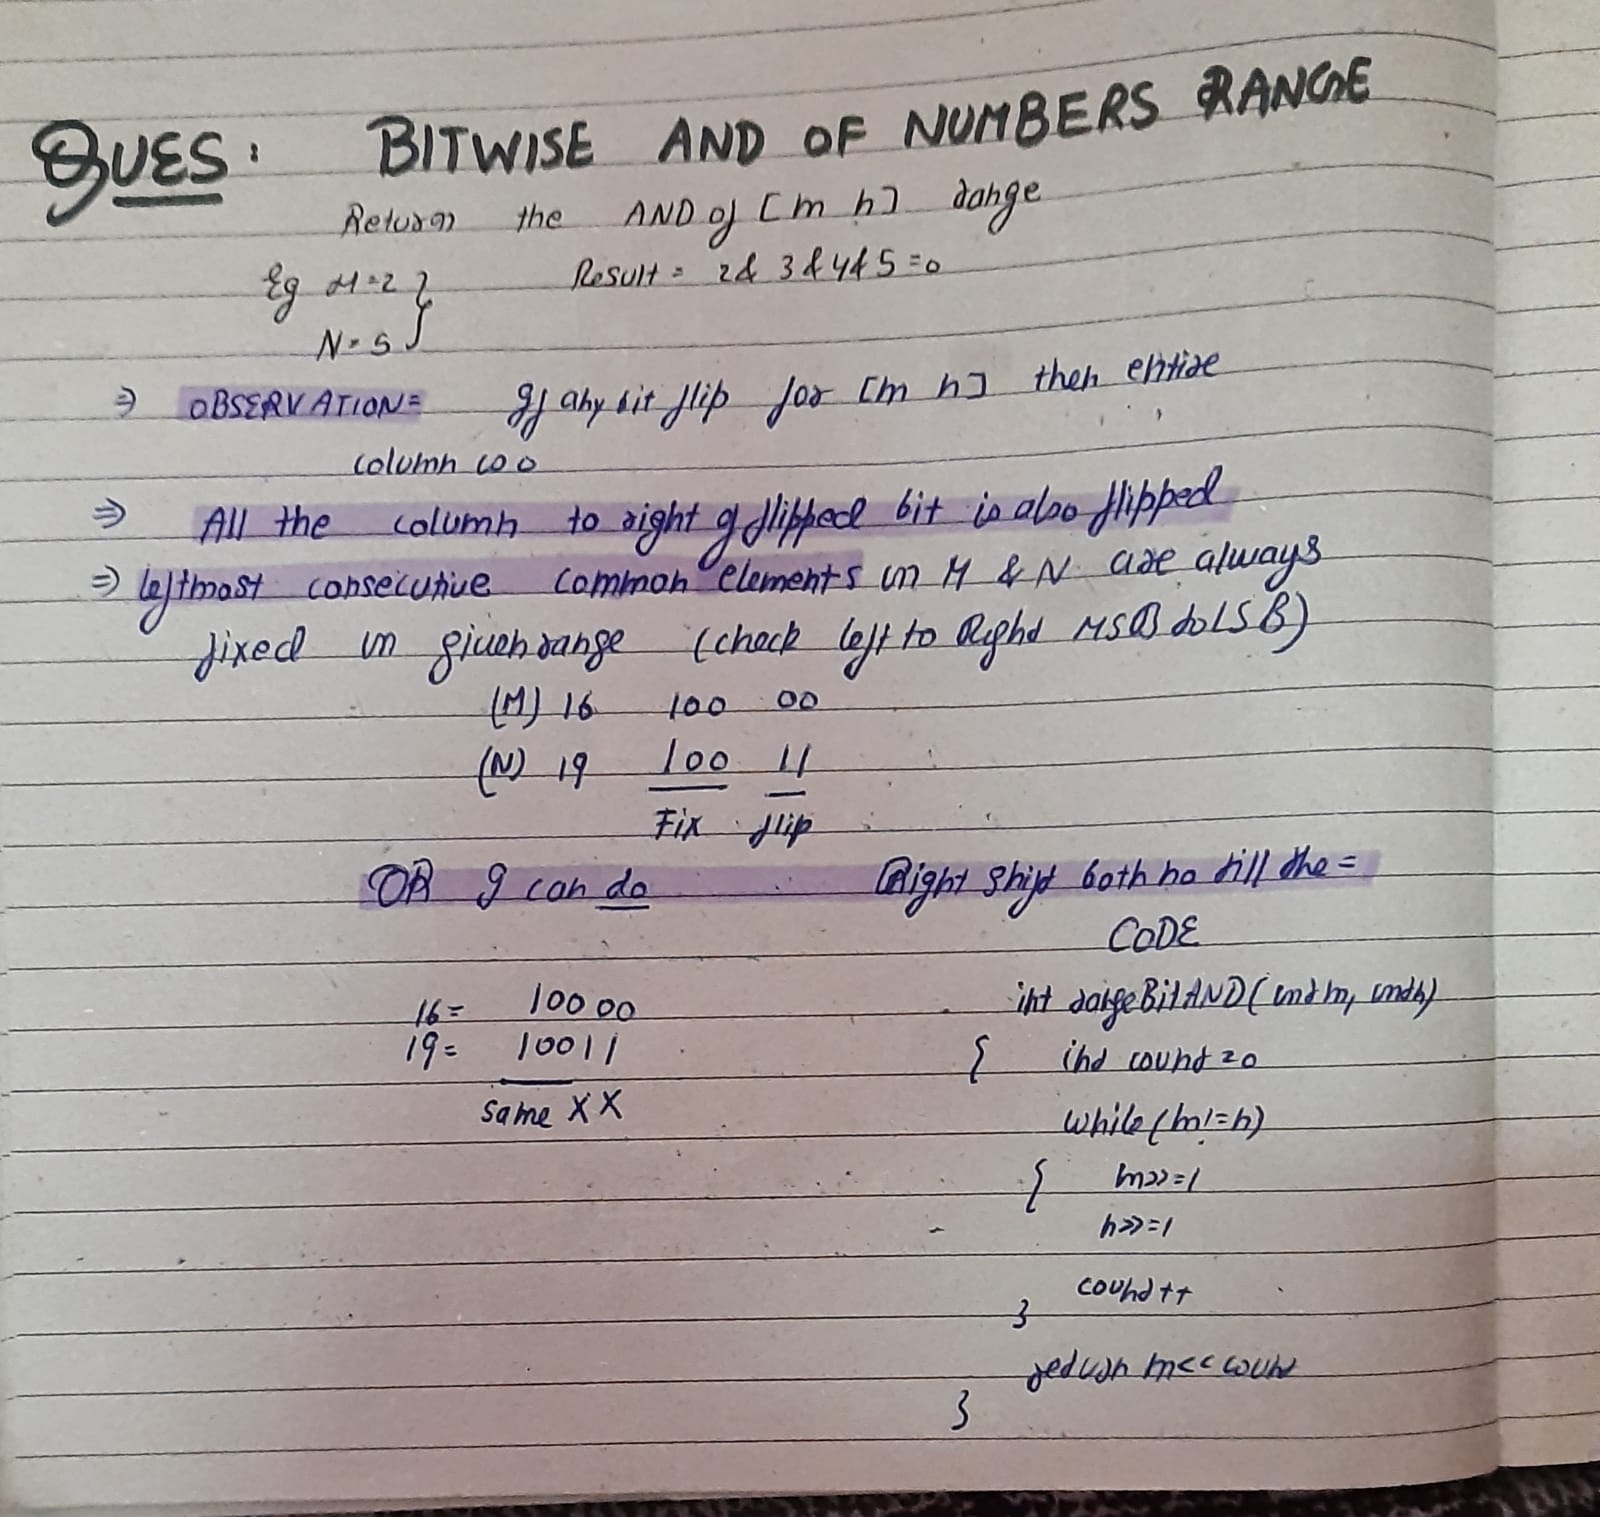 QUES: BITWISE AND OF NUMBERS RANGE
Return the AND of [m n] range
Eg M=2 } Result = 2& 3&4&5=0
N=5
⇒ OBSERVATION= If any bit flip for [m n] then entire
column is 0
⇒ All the column to right of flipped bit is also flipped
⇒ leftmost consecutive common elements in M & N are always
fixed in given range (check left to Right MSB to LSB)
(M) 16 100 00
(N) 19 100 11
Fix flip
OR I can do Right shift both no till the =
CODE
16= 10000 int rangeBitAND(int m, int n)
19= 10011 { int count=0
same X X while(m!=n)
{ m>>=1
n>>=1
count++
}
return m<<count
}